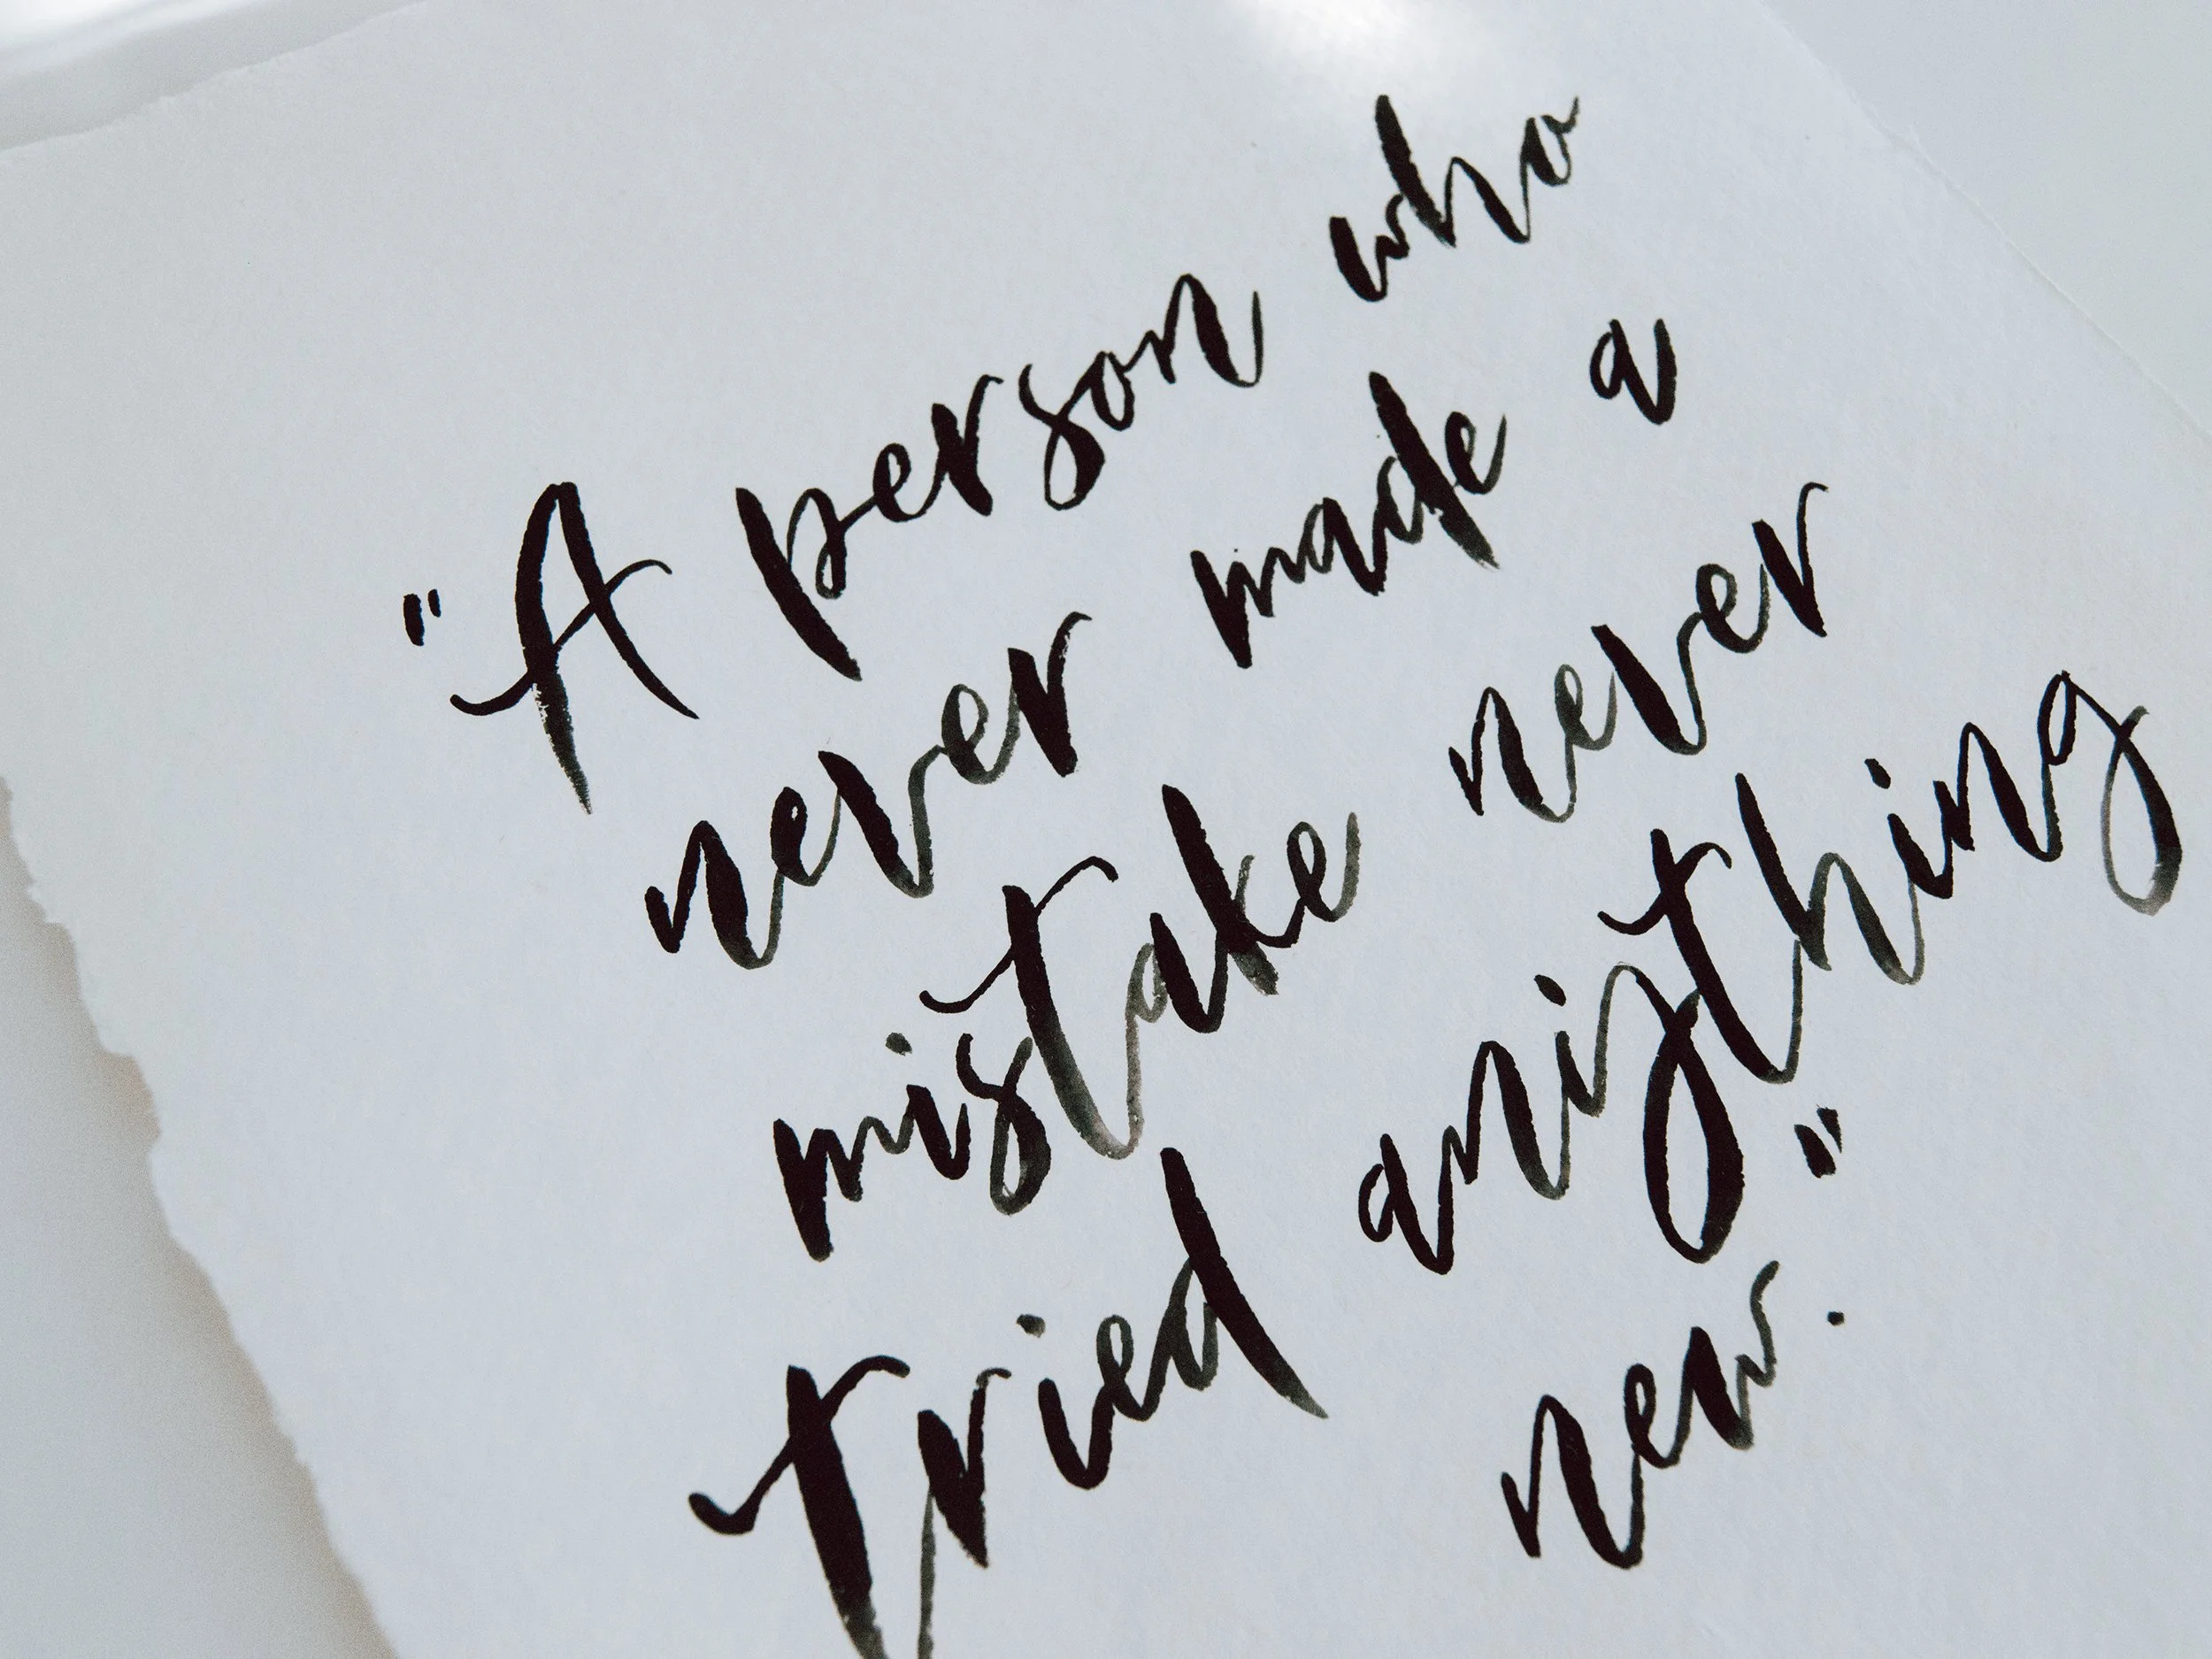 "A person who
never made a
mistake never
tried anything
new."